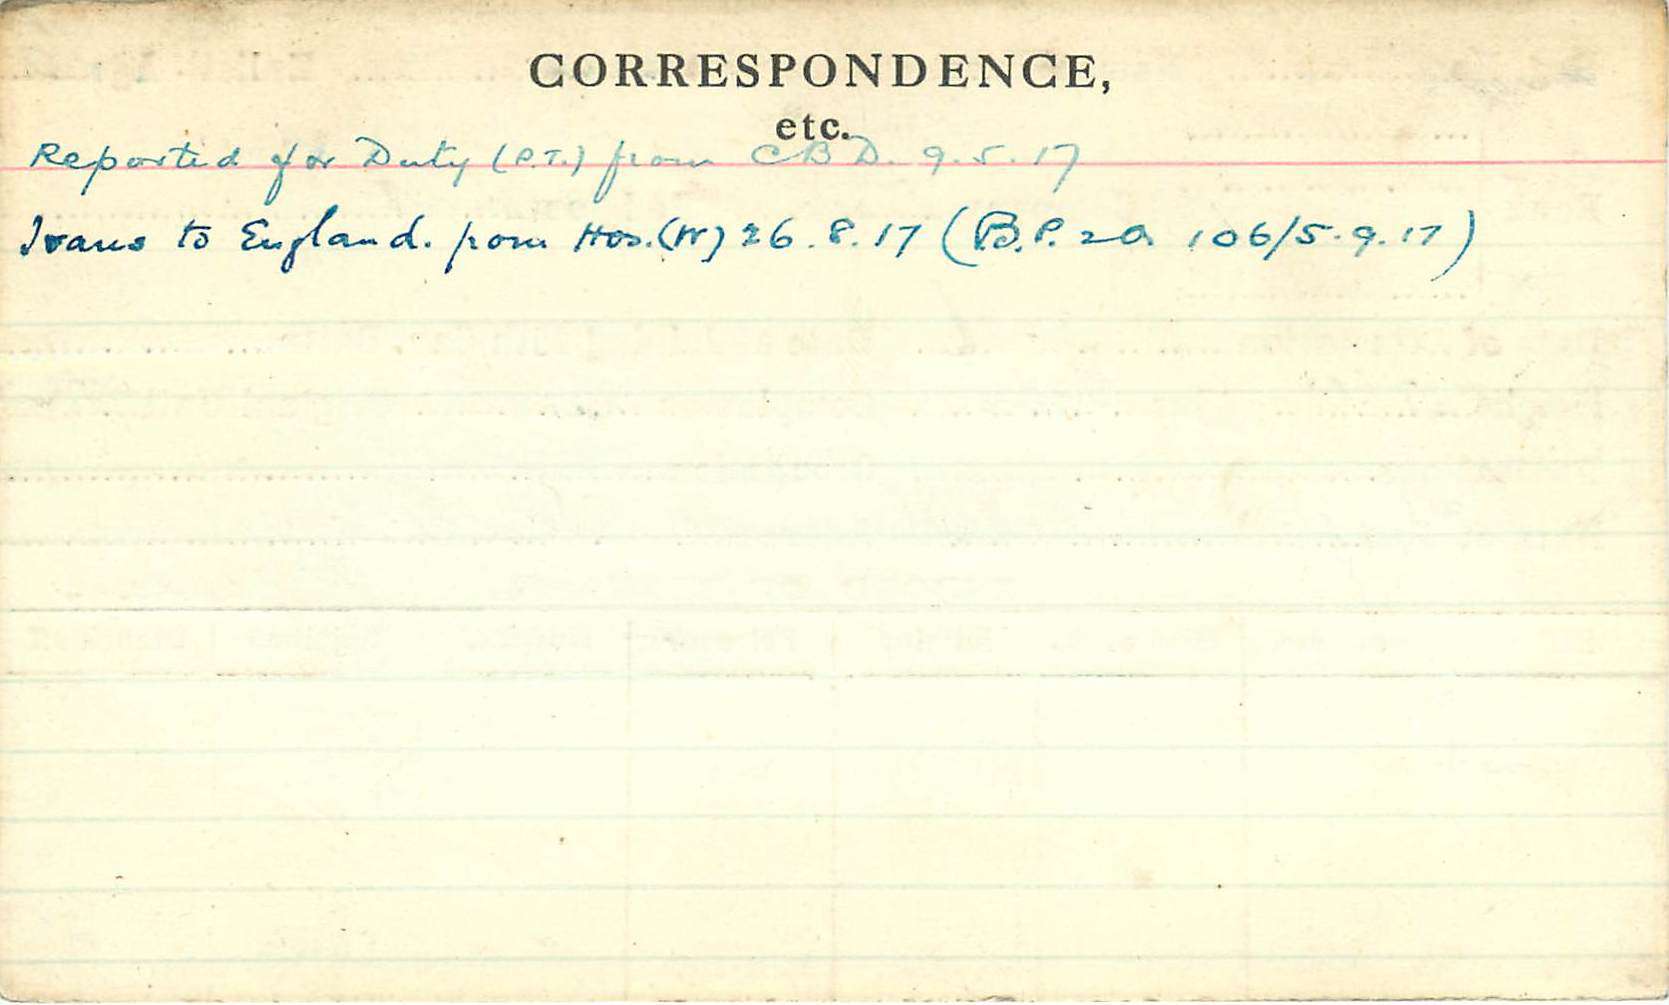 CORRESPONDENCE,
etc.
Reported for Duty (P.T.) from CBD. 9.5.17
Trans to England. from Hos. (W) 26.8.17 (B.P. 2a 106/5.9.17)